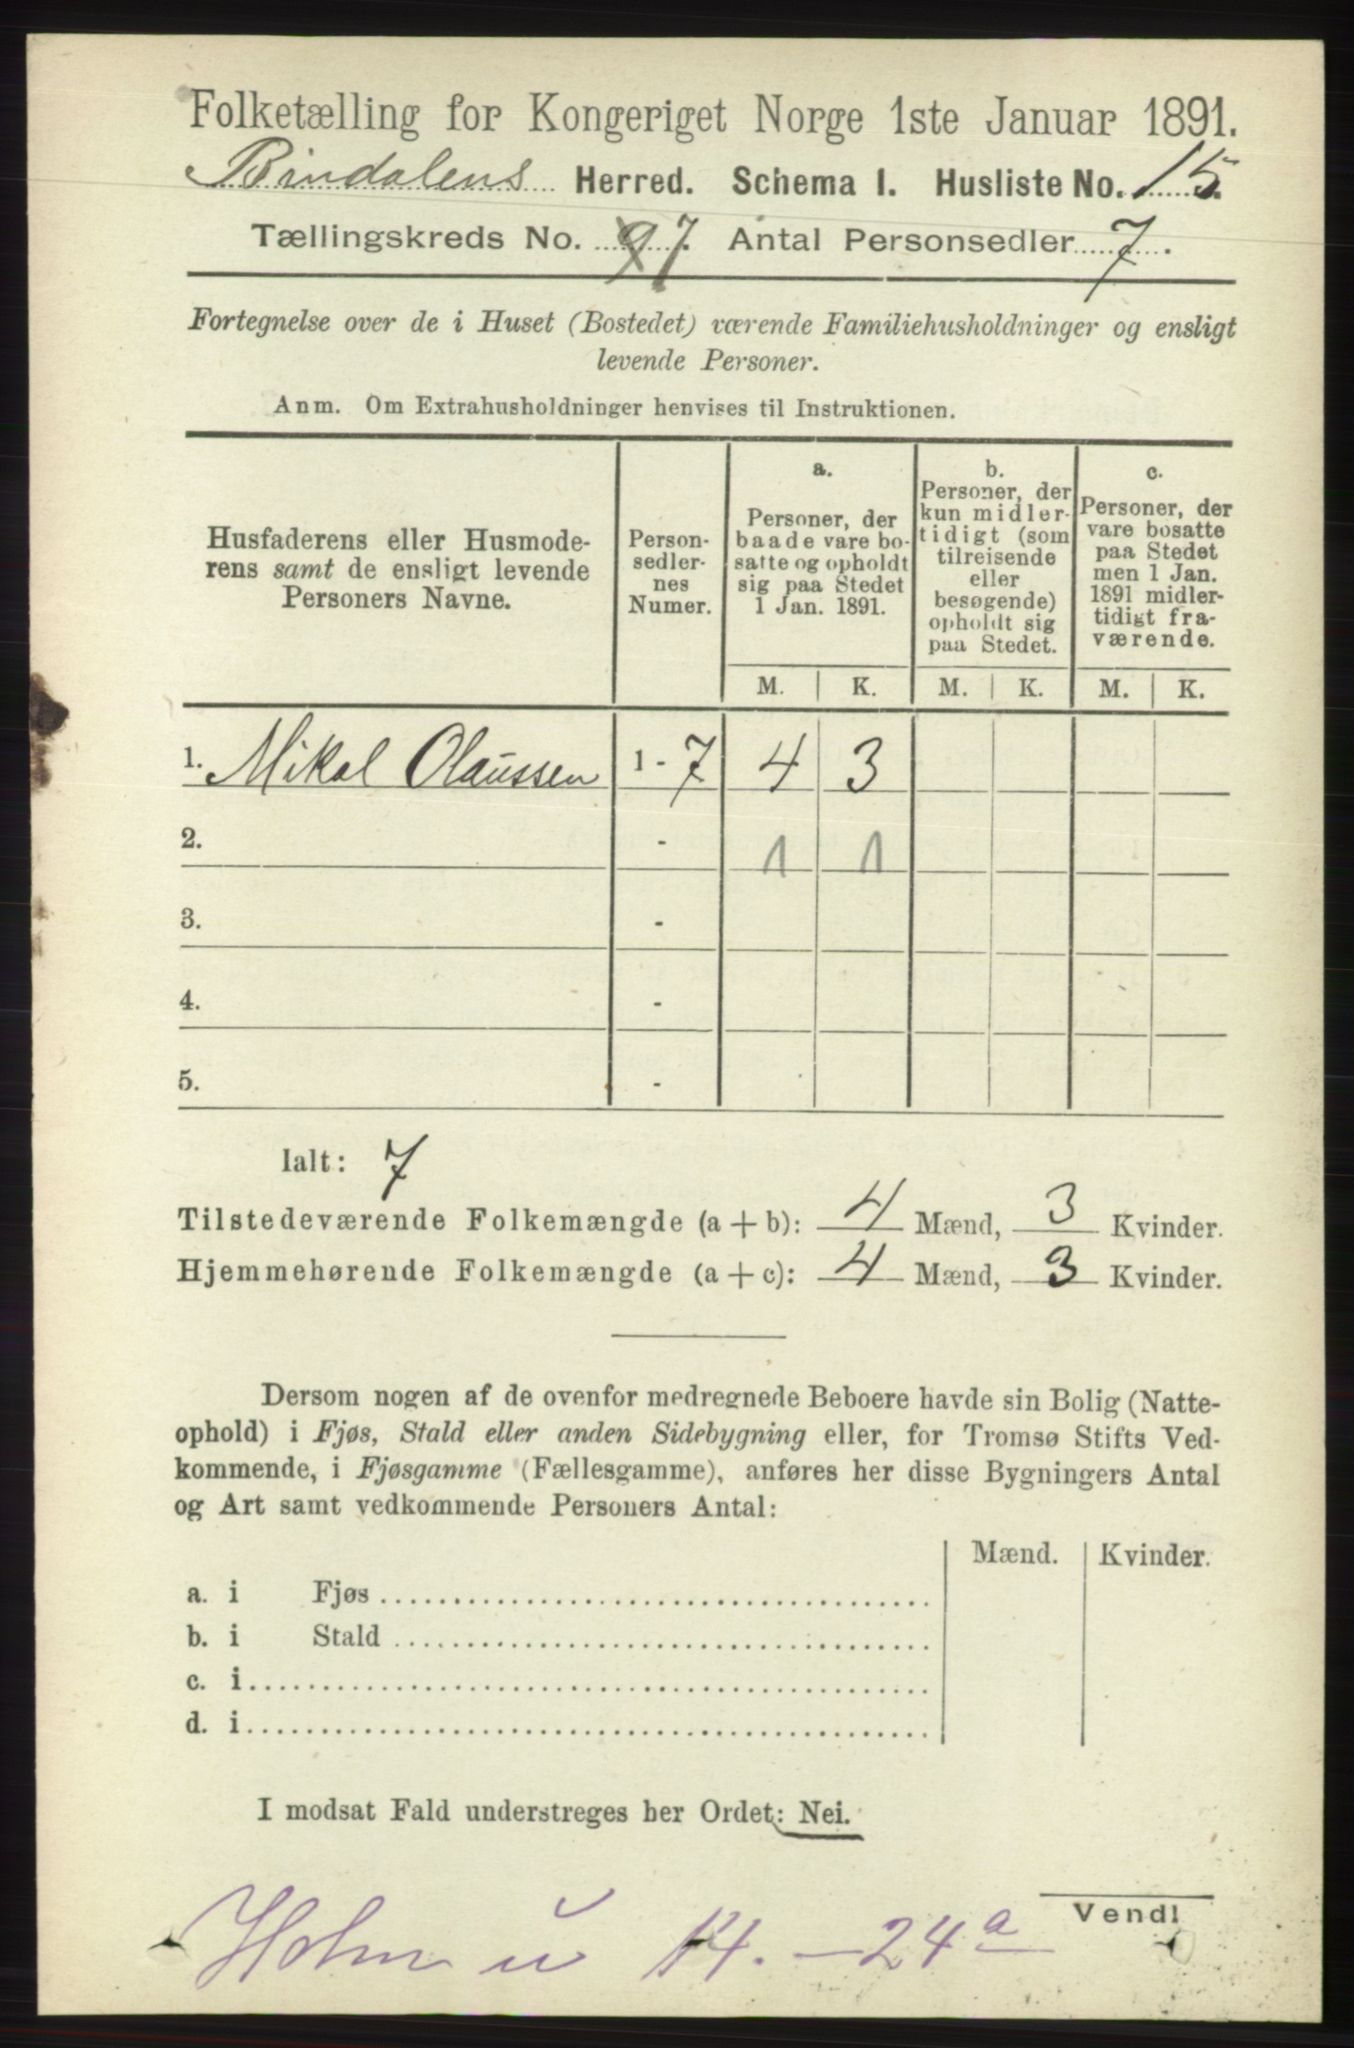 Folketælling for Kongeriget Norge 1ste Januar 1891.
Bindalens Herred. Schema I. Husliste No. 15.
Tællingskreds No. 9 7. Antal Personsedler 7.
Fortegnelse over de i Huset (Bostedet) værende Familiehusholdninger og ensligt
levende Personer.
Anm. Om Extrahusholdninger henvises til Instruktionen.
Husfaderens eller Husmode-
rens samt de ensligt levende
Personers Navne.
Person-
sedler-
nes
Numer.
a.
Personer, der
baade vare bo-
satte og opholdt
sig paa Stedet
1 Jan. 1891.
b.
Personer, der
kun midler-
tidigt (som
tilreisende
eller
besøgende)
opholdt sig
paa Stedet.
c.
Personer, der
vare bosatte
paa Stedet
men 1 Jan.
1891 midler-
tidigt fra-
værende.
M. K. M. K. M. K.
1. Mikal Olaussen 1 - 7 4 3
2. - 1 1
3. -
4. -
5. -
Ialt: 7
Tilstedeværende Folkemængde (a + b): 4 Mænd, 3 Kvinder.
Hjemmehørende Folkemængde (a + c): 4 Mænd, 3 Kvinder.
Dersom nogen af de ovenfor medregnede Beboere havde sin Bolig (Natte-
ophold) i Fjøs, Stald eller anden Sidebygning eller, for Tromsø Stifts Ved-
kommende, i Fjøsgamme (Fællesgamme), anføres her disse Bygningers Antal
og Art samt vedkommende Personers Antal:
Mænd. Kvinder.
a. i Fjøs
b. i Stald
c. i
d. i
I modsat Fald understreges her Ordet: Nei.
Vend!
Holm u 14. - 24 a